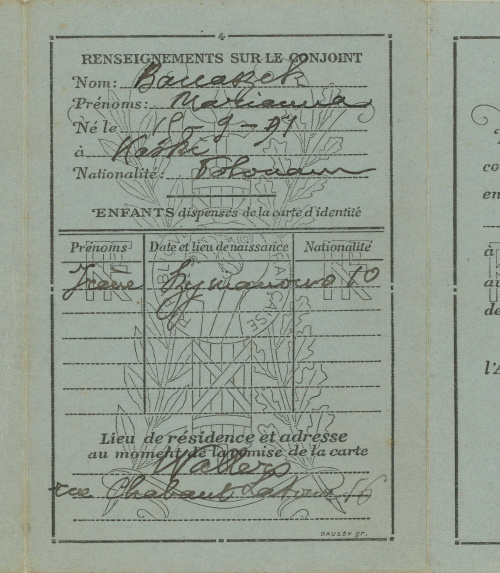 4
RENSEIGNEMENTS SUR LE CONJOINT
Nom: Banaszek
Prénoms: Marianna
Né le 15-9-97
à
Nationalité: Polonaise
ENFANTS dispensés de la carte d'identité
Prénoms Date et lieu de naissance Nationalité
Irène Szymanowo PO
Lieu de résidence et adresse
au moment de la remise de la carte
Wallers
rue Chabaud Latour 16
DAUSSY gr.
co
en
à
au
de
l'A